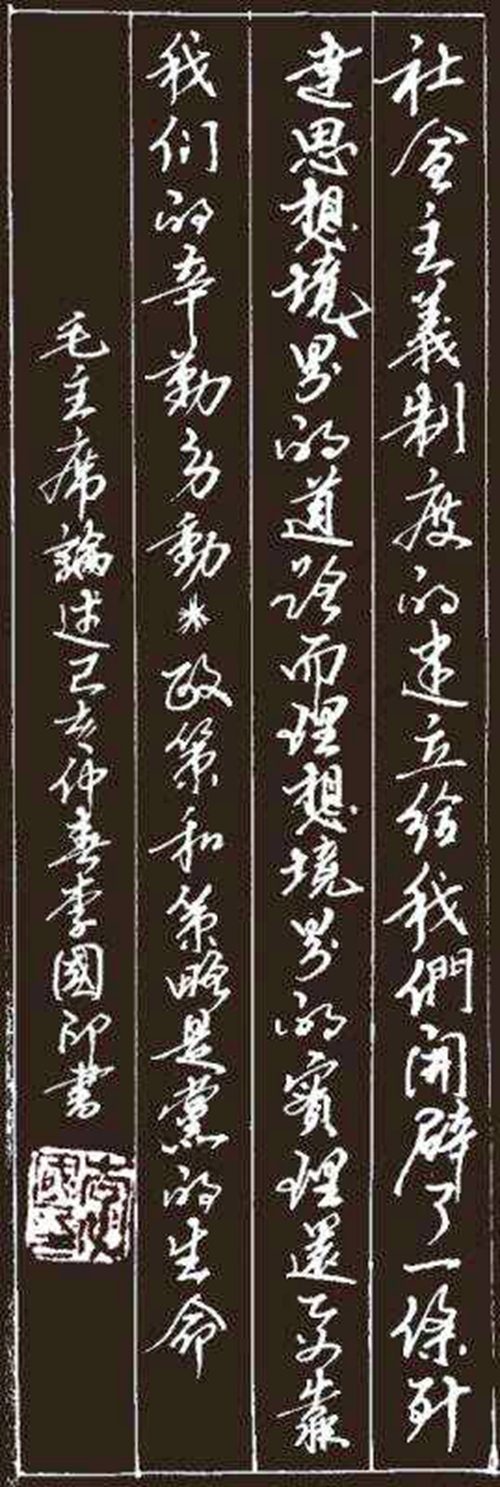 社会主義制度的建立给我們開辟了一條到
達思想境界的道路而理想境界的實現還要靠
我们的辛勤劳動*政策和策略是黨的生命
毛主席論述己亥仲春李國印書